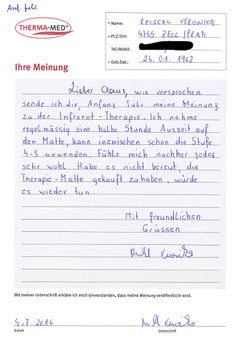 Anf. Juli
THERMA-MED®
Name: REISCHL VERONIKA
PLZ/Ort: 4755 ZELL /PRAM
Tel./Mobil:
Geb.Dat.: 24.01.1962
Ihre Meinung
Lieber Claus, wie versprochen
sende ich dir, Anfang Juli meine Meinung
zu der Infrarot-Therapie. Ich nehme
regelmässig eine halbe Stunde Auszeit auf
der Matte, kann inzwischen schon die Stufe
4-5 anwenden. Fühle mich nachher jedes
sehr wohl. Habe es nicht bereut, die
Therapie-Matte gekauft zu haben, würde
es wieder tun.
Mit freundlichen
Grüssen
Mit meiner Unterschrift erkläre ich mich einverstanden, dass meine Meinung veröffentlicht wird.
4.7.2016
Datum
Unterschrift